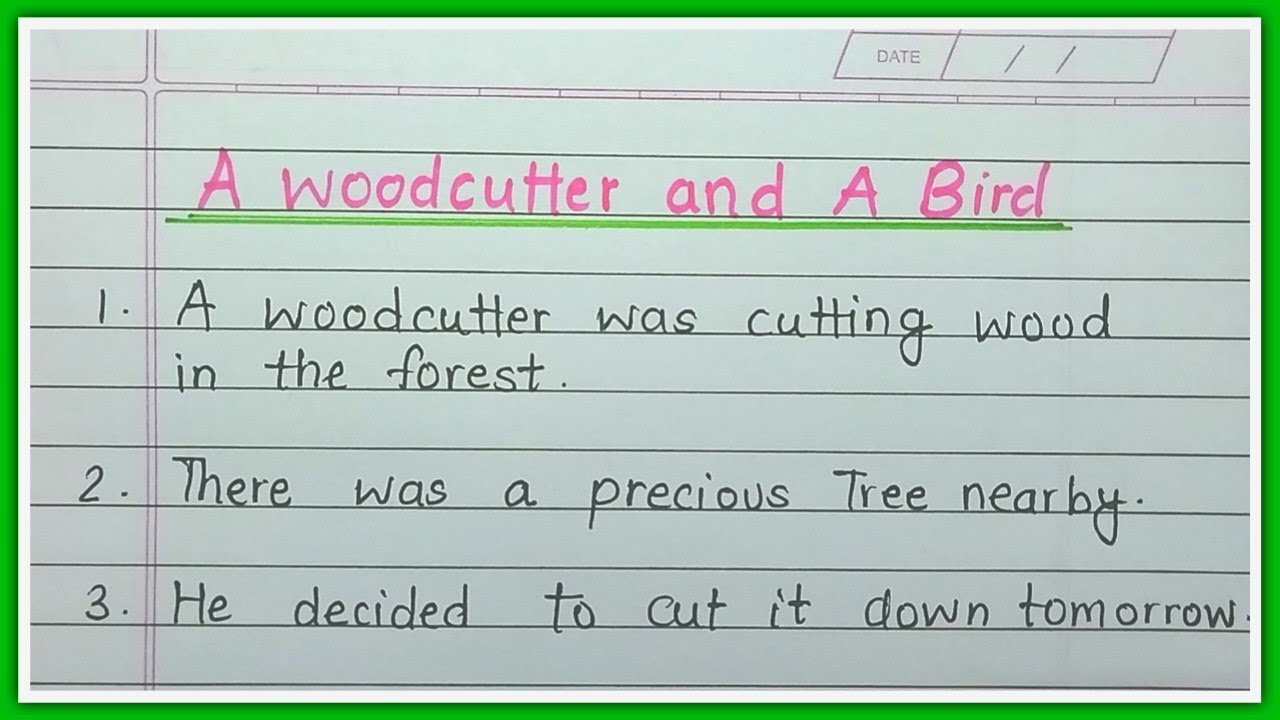 DATE / /
A woodcutter and A Bird
1. A woodcutter was cutting wood
in the forest.
2. There was a precious Tree nearby.
3. He decided to cut it down tomorrow.